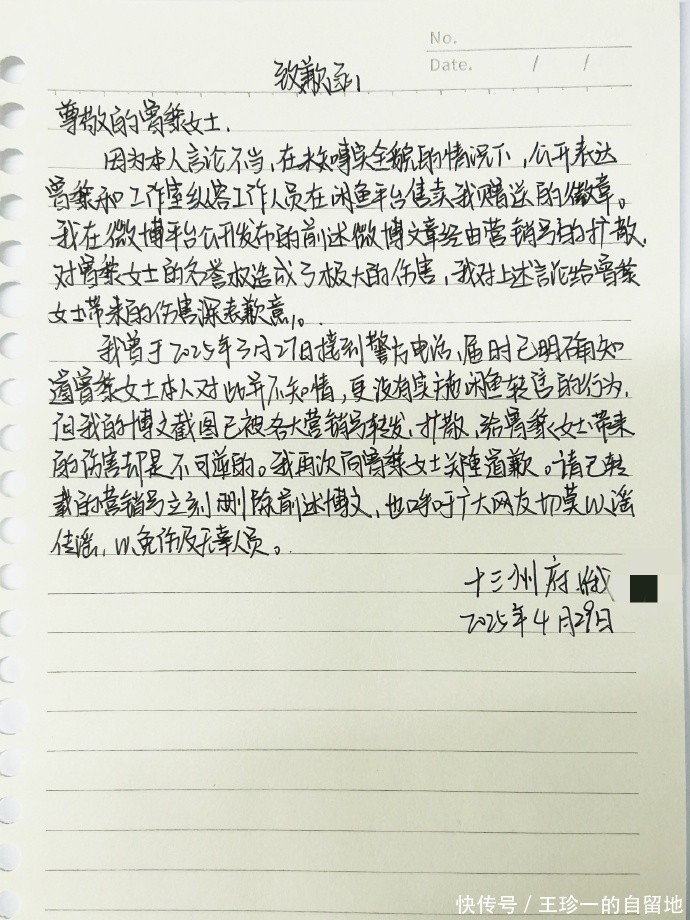 No.
Date. / /
致歉函
尊敬的曾黎女士.
因为本人言论不当,在未知事实全貌的情况下,公开表达
曾黎和工作室纵容工作人员在闲鱼平台售卖我赠送的徽章。
我在微博平台公开发布的前述微博文章经由营销号的扩散,
对曾黎女士的名誉权造成了极大的伤害,我对上述言论给曾黎
女士带来的伤害深表歉意。
我曾于2025年3月27日接到警方电话,届时已明确知
道曾黎女士本人对此并不知情,更没有实施闲鱼转售的行为,
但我的博文截图已被各大营销号转发、扩散,给曾黎女士带来
的伤害却是不可逆的。我再次向曾黎女士关注道歉。请已转
载的营销号立刻删除前述博文,也呼吁广大网友切莫以谣
传谣,以免伤及无辜人员。
十三州府
2025年4月29日
快传号/王珍一的自留地